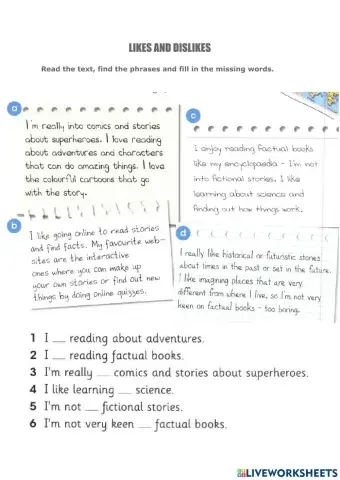 LIKES AND DISLIKES
Read the text, find the phrases and fill in the missing words.
a
I'm really into comics and stories
about superheroes. I love reading
about adventures and characters
that can do amazing things. I love
the colourful cartoons that go
with the story.
b
I like going online to read stories
and find facts. My favourite web-
sites are the interactive
ones where you can make up
your own stories or find out new
things by doing online quizzes.
c
I enjoy reading factual books
like my encyclopaedia - I'm not
into fictional stories. I like
learning about science and
finding out how things work.
d
I really like historical or futuristic stories
about times in the past or set in the future.
I like imagining places that are very
different from where I live, so I'm not very
keen on factual books - too boring.
1 I __ reading about adventures.
2 I __ reading factual books.
3 I'm really __ comics and stories about superheroes.
4 I like learning __ science.
5 I'm not __ fictional stories.
6 I'm not very keen __ factual books.
LIVEWORKSHEETS